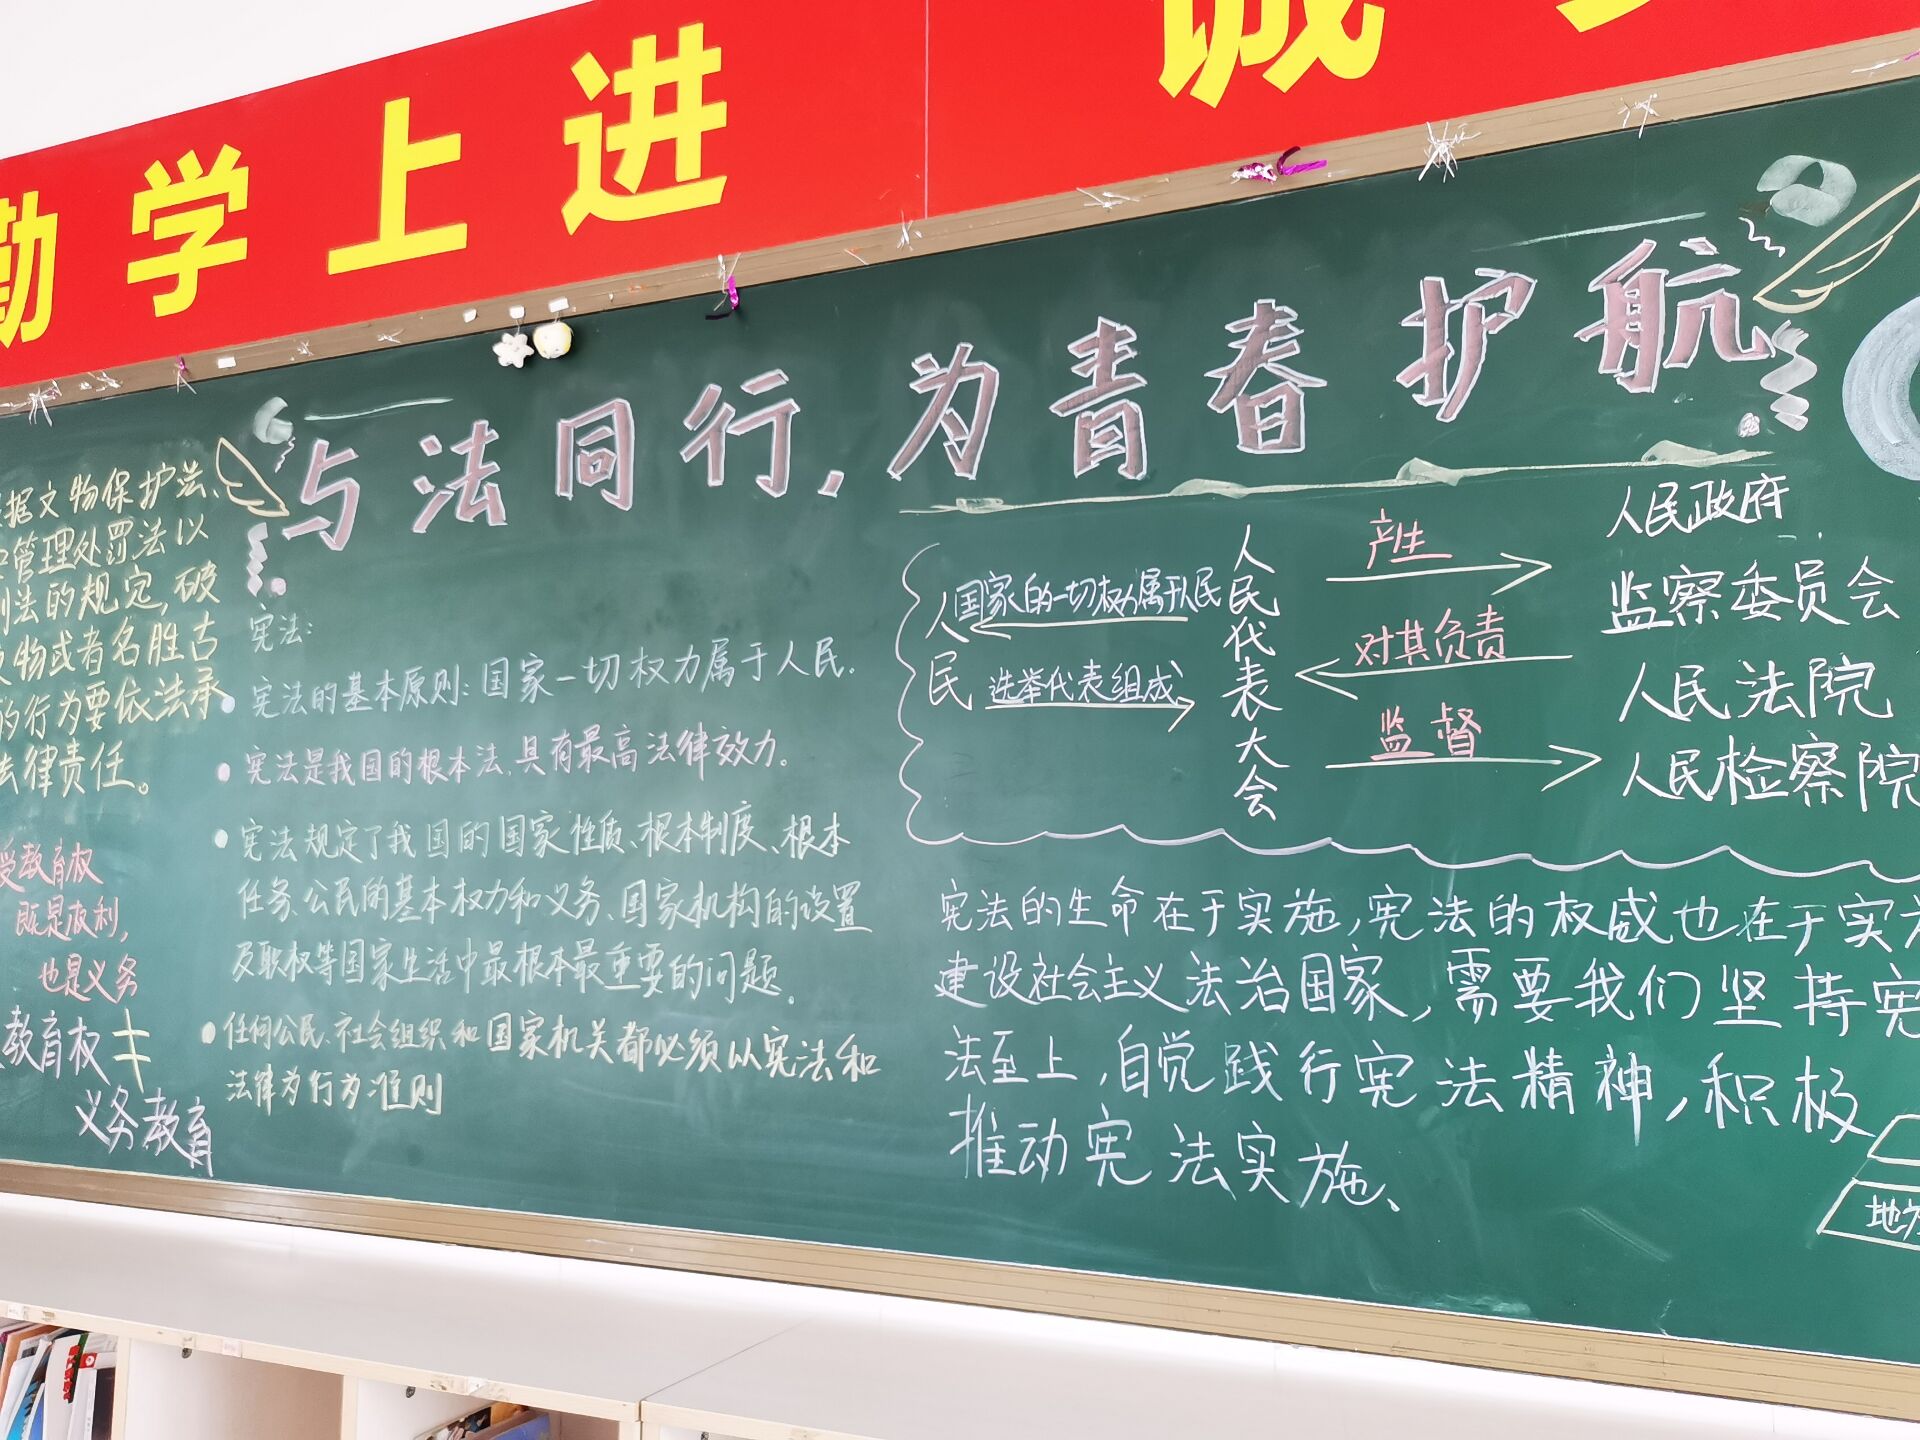 勤学上进 诚
与法同行,为青春护航
据文物保护法、
管理处罚法以
刑法的规定,破
文物或者名胜古
的行为要依法承
法律责任。
受教育权
既是权利,
也是义务
教育权≠
义务教育
宪法:
宪法的基本原则:国家一切权力属于人民.
宪法是我国的根本法,具有最高法律效力。
宪法规定了我国的国家性质、根本制度、根本
任务、公民的基本权力和义务、国家机构的设置
及职权等国家生活中最根本最重要的问题。
任何公民、社会组织和国家机关都必须以宪法和
法律为行为准则
人民
国家的一切权力属于人民
选举代表组成
人民代表大会
产生
对其负责
监督
人民政府
监察委员会
人民法院
人民检察院
宪法的生命在于实施,宪法的权威也在于实施
建设社会主义法治国家,需要我们坚持宪
法至上,自觉践行宪法精神,积极
推动宪法实施、
地方